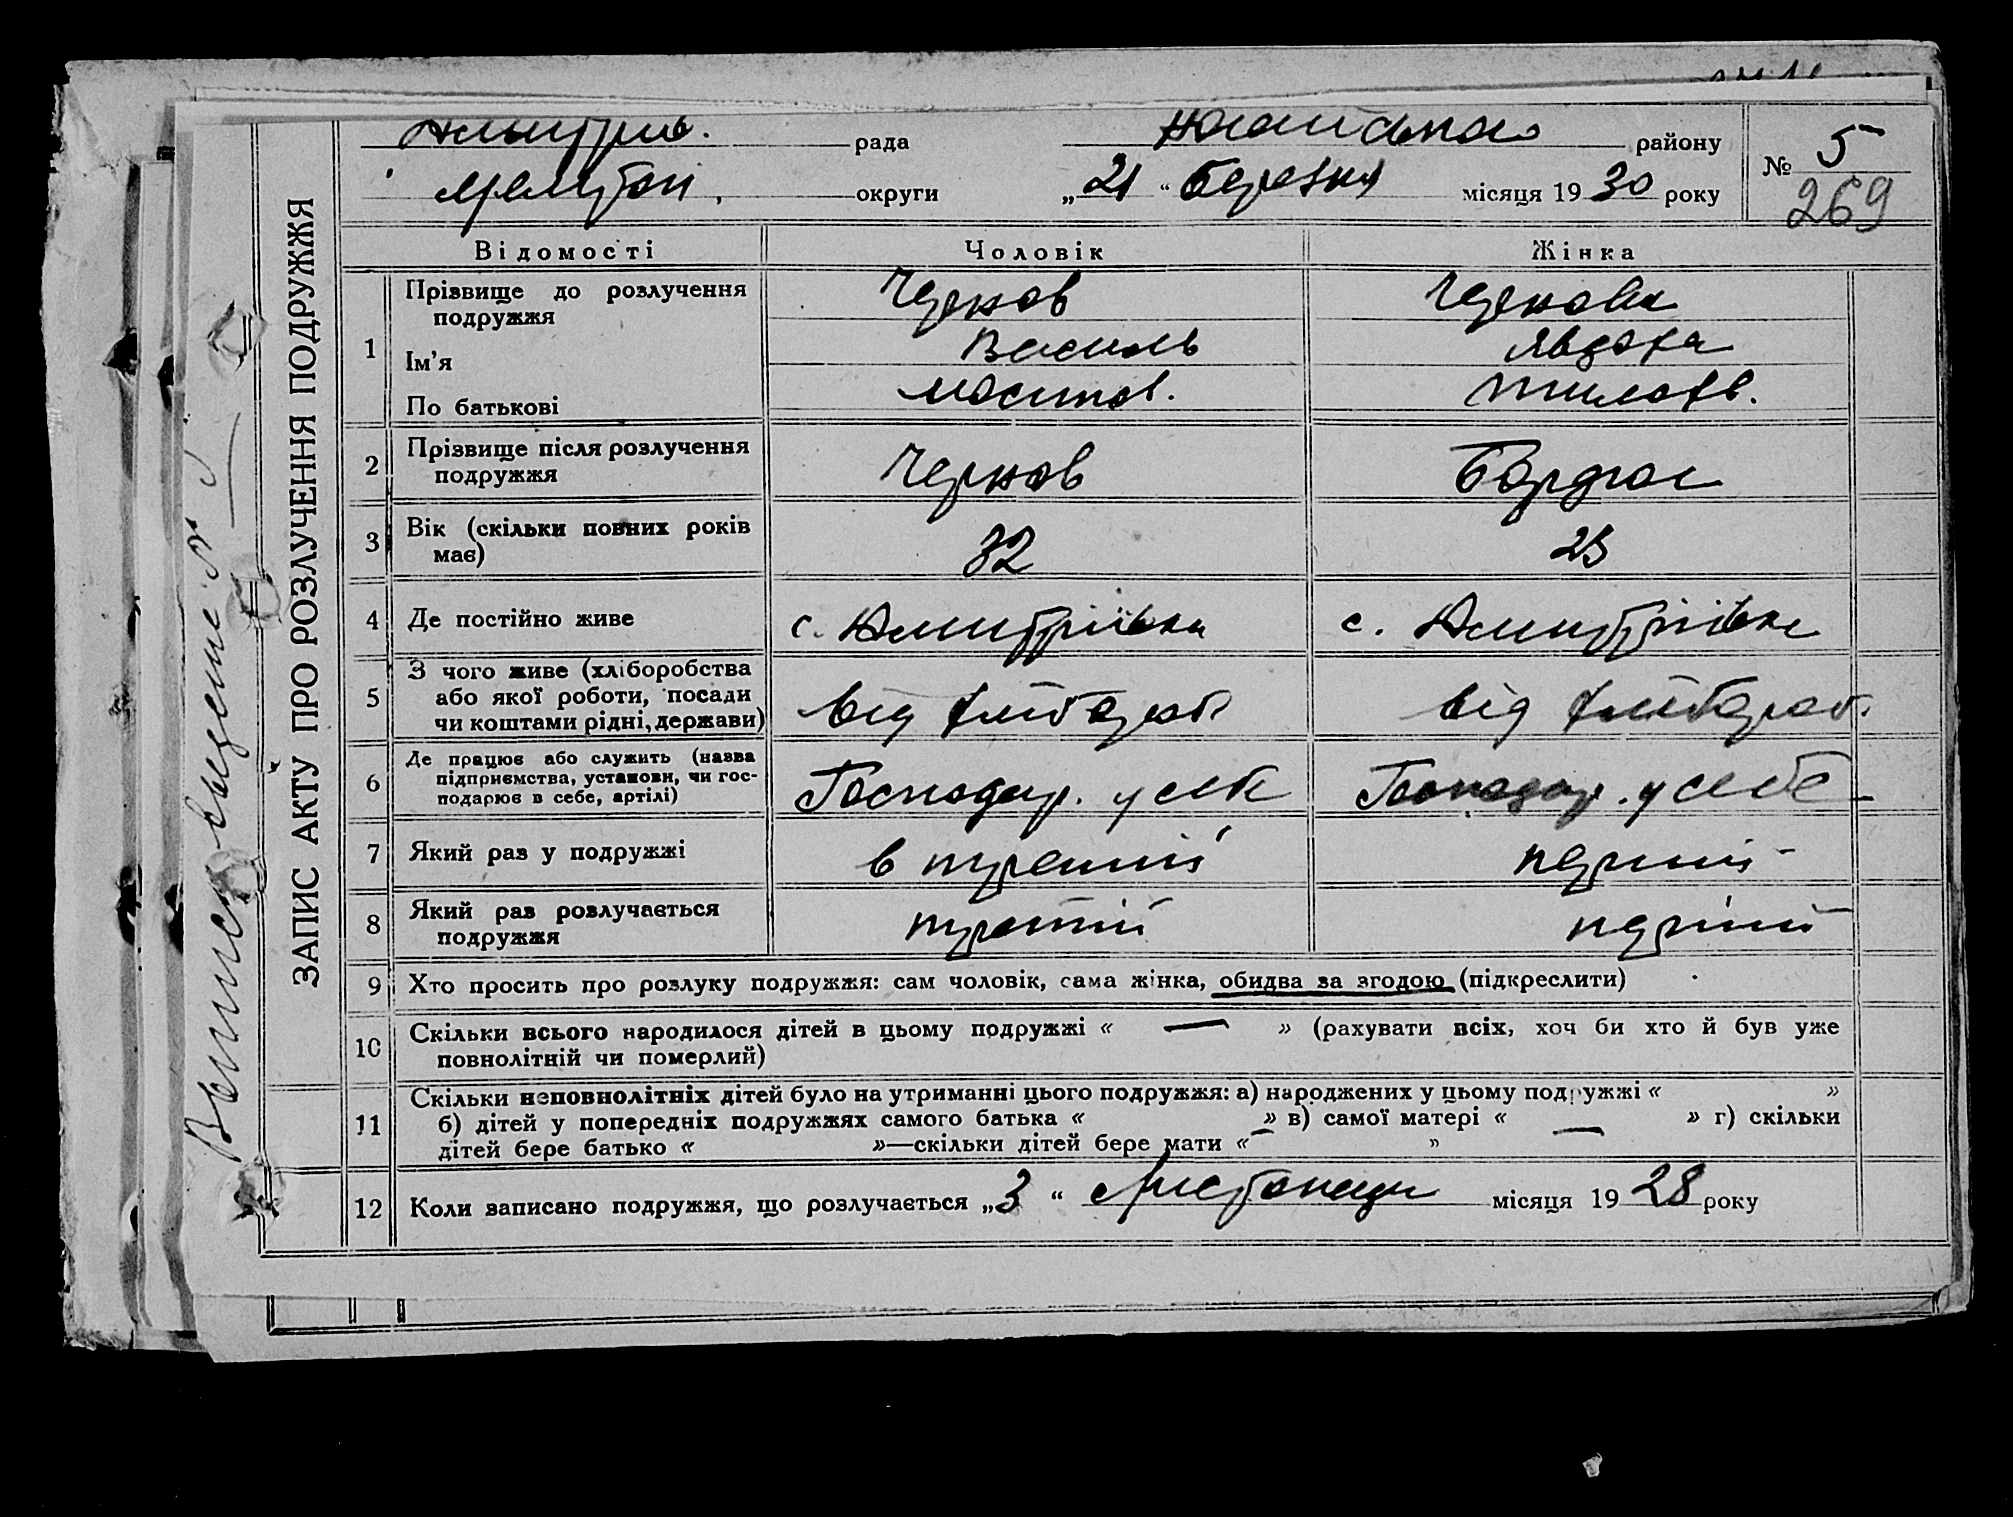 ЗАПИС АКТУ ПРО РОЗЛУЧЕННЯ ПОДРУЖЖЯ
рада
району
округи „21“ березня місяця 1930 року
№ 5
269
Відомості Чоловік Жінка
1 Прізвище до розлучення подружжя Чернов Чернова
Ім'я Василь Явдоха
По батькові
2 Прізвище після розлучення подружжя Чернов
3 Вік (скільки повних років має) 32 23
4 Де постійно живе с. Дмитріівка с. Дмитріівка
5 З чого живе (хліборобства
або якої роботи, посади
чи коштами рідні, держави) від хлібороб від хлібороб.
6 Де працює або служить (назва
підприємства, установи, чи гос-
подарює в себе, артілі) Господар. у себе Господар. у себе
7 Який раз у подружжі в третій перший
8 Який раз розлучається подружжя третій перший
9 Хто просить про розлуку подружжя: сам чоловік, сама жінка, обидва за згодою (підкреслити)
10 Скільки всього народилося дітей в цьому подружжі « — » (рахувати всіх, хоч би хто й був уже
повнолітній чи померлий)
11 Скільки неповнолітніх дітей було на утриманні цього подружжя: а) народжених у цьому подружжі « »
б) дітей у попередніх подружжях самого батька « » в) самої матері « — » г) скільки
дітей бере батько « »—скільки дітей бере мати « »
12 Коли записано подружжя, що розлучається „3“ листопада місяця 1928 року